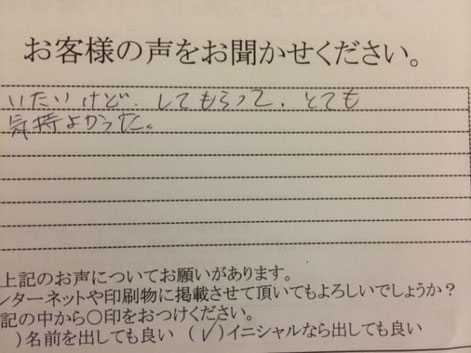 お客様の声をお聞かせください。
いたいけど、してもらって、とても
気持よかった。
上記のお声についてお願いがあります。
ンターネットや印刷物に掲載させて頂いてもよろしいでしょうか？
記の中から〇印をおつけください。
）名前を出しても良い （✓）イニシャルなら出しても良い